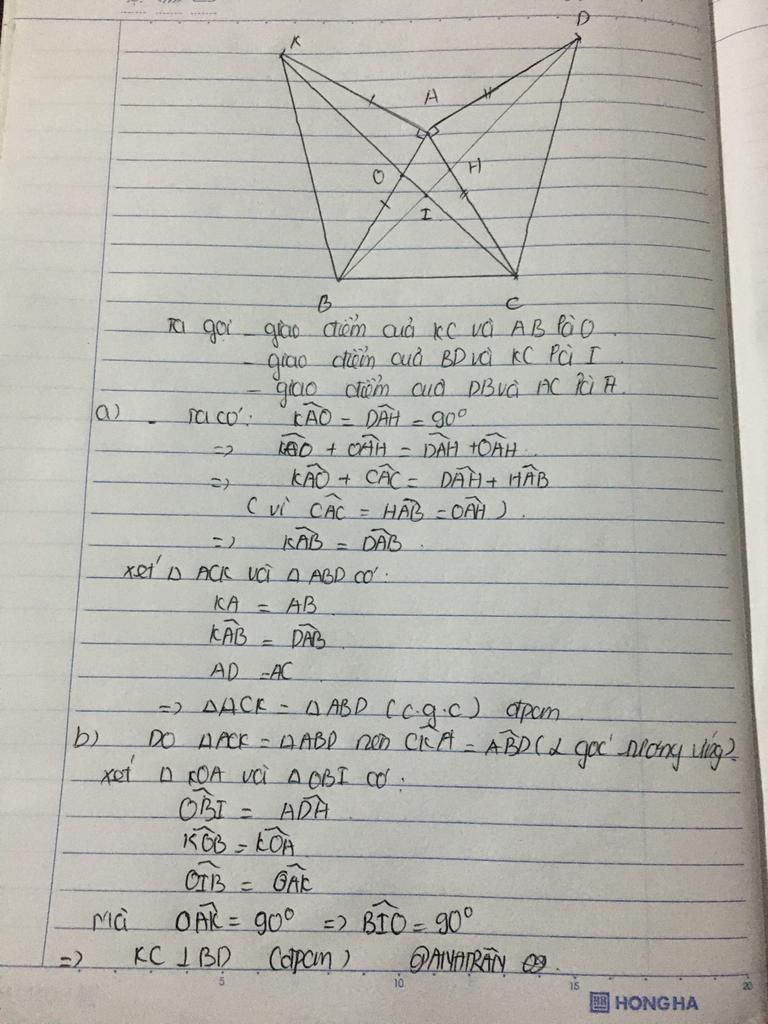 K
D
A
O
H
I
B
C
Ta gọi - giao điểm của KC và AB là O.
- giao điểm của BD và KC là I.
- giao điểm của DB và AC là H.
a) - Ta có: KÂO = DÂH = 90°
=> KÂO + OÂH = DÂH + OÂH.
=> KÂO + CÂC = DÂH + HÂB
( vì CÂC = HÂB = OÂH ).
=> KÂB = DÂB.
xét Δ ACK và Δ ABD có:
KA = AB
KÂB = DÂB
AD = AC
=> ΔACK = ΔABD (c.g.c) đpcm
b) Do ΔACK = ΔABD nên CK̂A = AB̂D (2 góc tương ứng).
xét Δ KOA và Δ OBI có:
OB̂I = AD̂A
KÔB = KÔA
OÎB = OÂK
Mà OÂK = 90° => BÎO = 90°
=> KC ⊥ BD (đpcm)
5 10 15 20
HONG HA